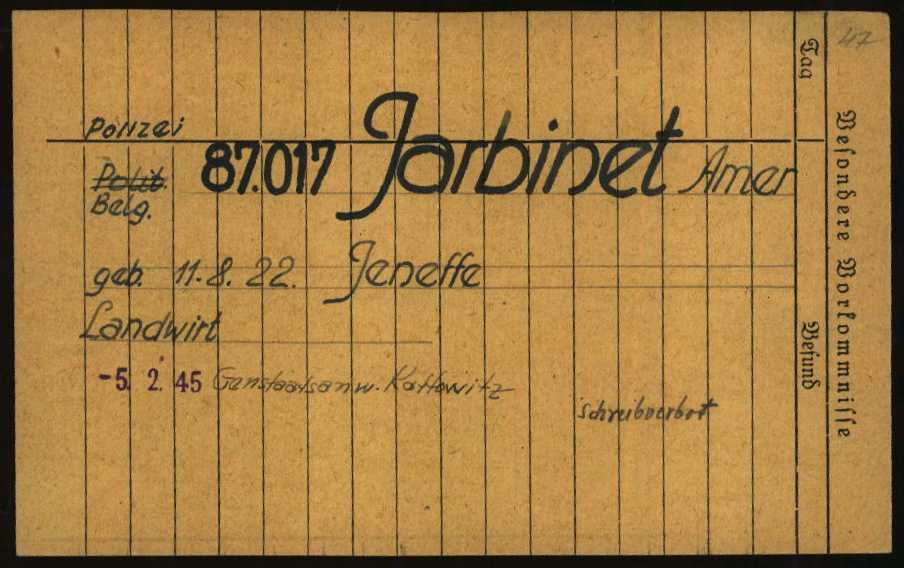 47
Polizei
87.017 Jarbinet Amer
Polit.
Belg.
geb. 11.8.22. Jeneffe
Landwirt
-5. 2. 45 Genstaatsanw. Kattowitz
Schreibverbot
Tag
Befund
Besondere Vorkommnisse